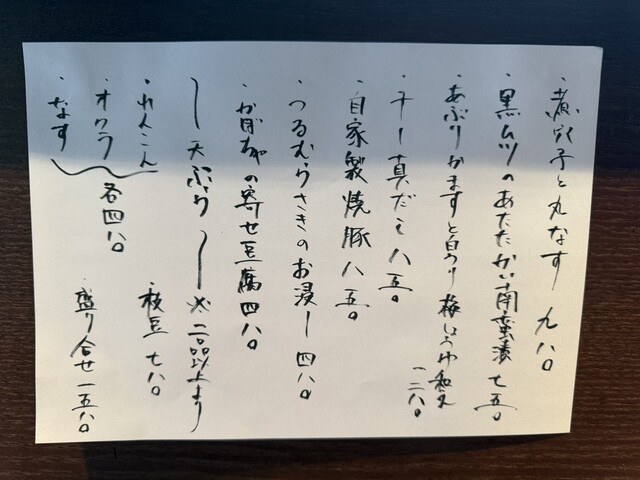 ・煮穴子と丸なす 九八〇
・黒ムツのあたたかい南蛮漬 七五〇
・あぶりかますと白うり梅しょうゆ和え 一二八〇
・干し真だこ 八五〇
・自家製焼豚 八五〇
・つるむらさきのお浸し 四八〇
・かぼちゃの寄せ豆腐 四八〇
〜天ぷら〜※二品以上より
・れんこん
・オクラ 各四八〇
・なす
枝豆 七八〇
盛り合せ 一五八〇